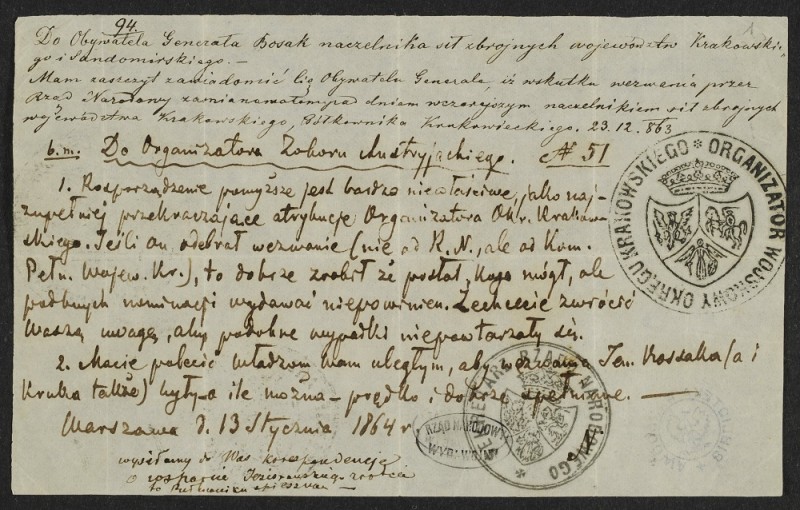 94.
Do Obywatela Generała Bosak naczelnika sił zbrojnych województw Krakowskie-
go i Sandomirskiego. —
Mam zaszczyt zawiadomić Cię Obywatelu Generale, iż wskutku wezwania przez
Rząd Narodowy zamianowałem pod dniem wczorajszym naczelnikiem sił zbrojnych
województwa Krakowskiego, Półkownika Krukowieckiego. 23.12.863
b.m. Do Organizatora Zaboru Austryjackiego. № 51
1. Rozporządzenie powyższe jest bardzo niewłaściwe, jako naj-
zupełniej przekraczające atrybucje Organizatora Okr. Krakow-
skiego. Jeśli on odebrał wezwanie (nie od R.N., ale od Kom.
Pełn. Wojew. Kr.), to dobrze zrobił że posłał, kogo mógł, ale
podobnych nominacji wydawać niepowinien. Zechcecie zwrócić
Waszą uwagę, aby podobne wypadki niepowtarzały się.
2. Macie polecić władzom Wam uległym, aby wezwania Jen. Bossaka (a i
Kruka także) były – o ile można – prędko i dobrze spełniane. —
Warszawa d. 13 Stycznia 1864 r
wysyłamy do Was korespondencją
o
ORGANIZATOR WOJSKOWY OKRĘGU KRAKOWSKIEGO
SEKRETARZ RZĄDU NARODOWEGO
RZĄD NARODOWY